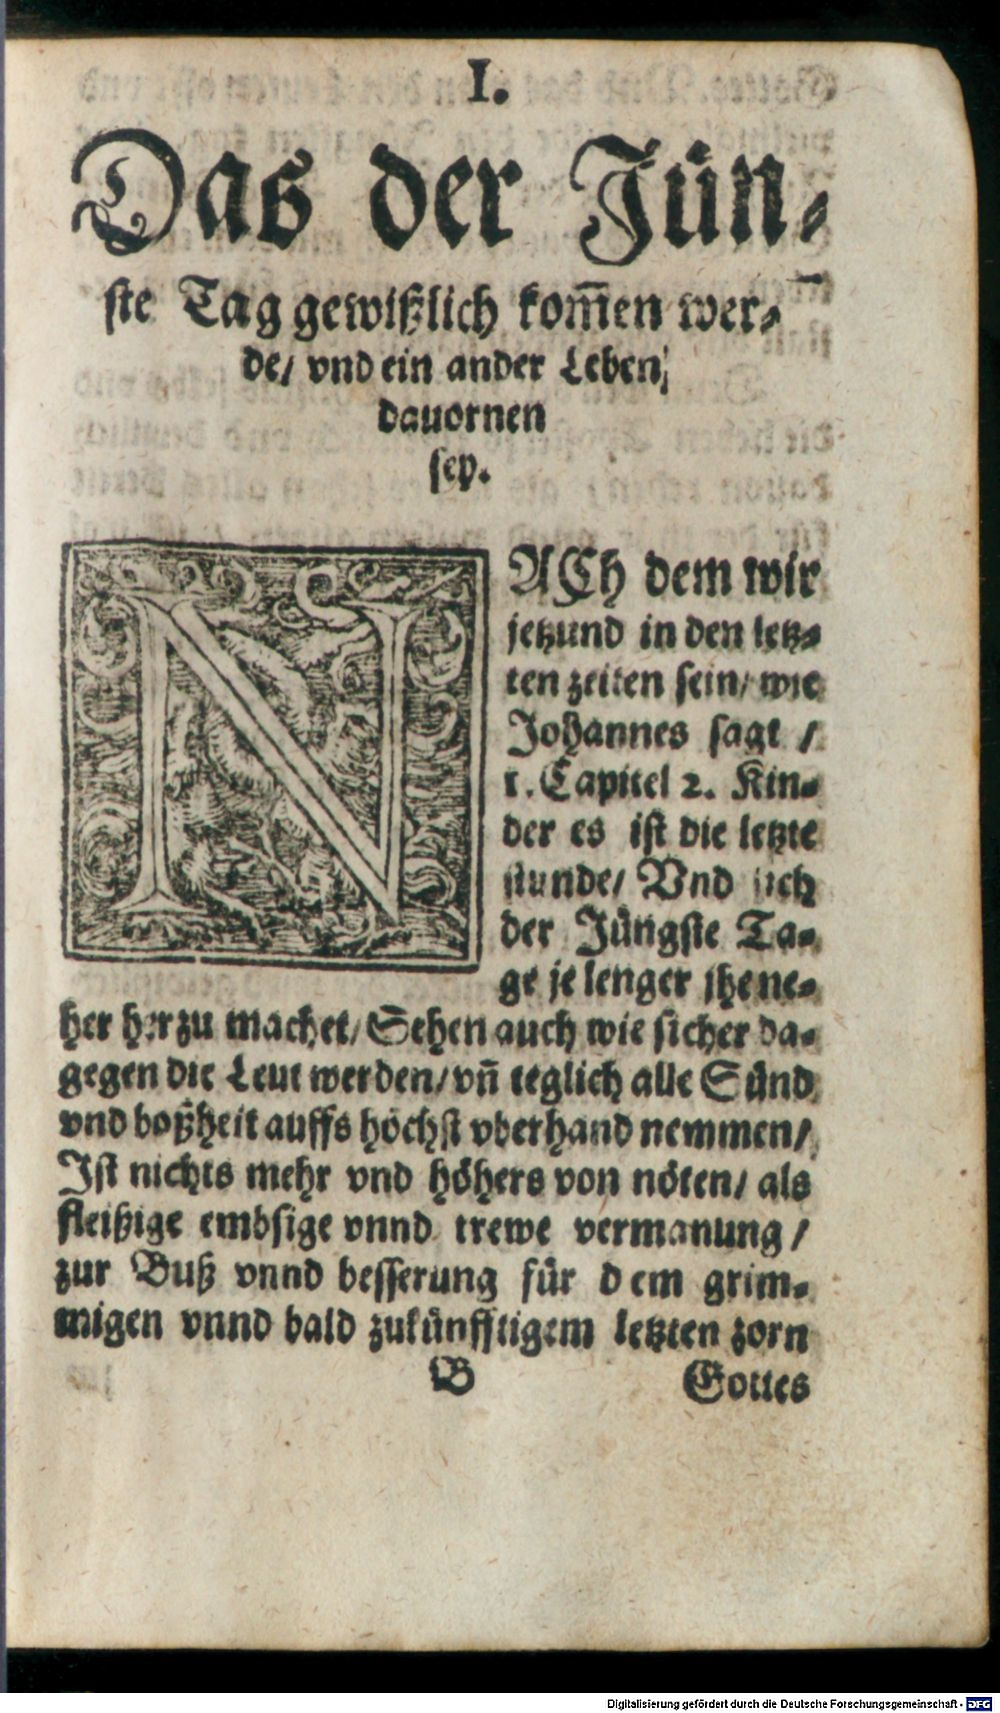 I.
Das der Jün-
ste Tag gewißlich kom̄en wer-
de/ vnd ein ander Leben/
dauornen
sey.
NACh dem wir
jetzund in den letz-
ten zeiten sein/ wie
Johannes sagt /
1. Capitel 2. Kin-
der es ist die letzte
stunde/ Vnd sich
der Jüngste Ta-
ge je lenger jhe ne-
her herzu machet/ Sehen auch wie sicher da-
gegen die Leut werden/ vn̄ teglich alle Sünd
vnd boßheit auffs höchst vberhand nemmen/
Ist nichts mehr vnd höhers von nöten/ als
fleißige embsige vnnd trewe vermanung /
zur Buß vnnd besserung für dem grim-
migen vnnd bald zukünfftigem letzten zorn
B Gottes
Digitalisierung gefördert durch die Deutsche Forschungsgemeinschaft - DFG